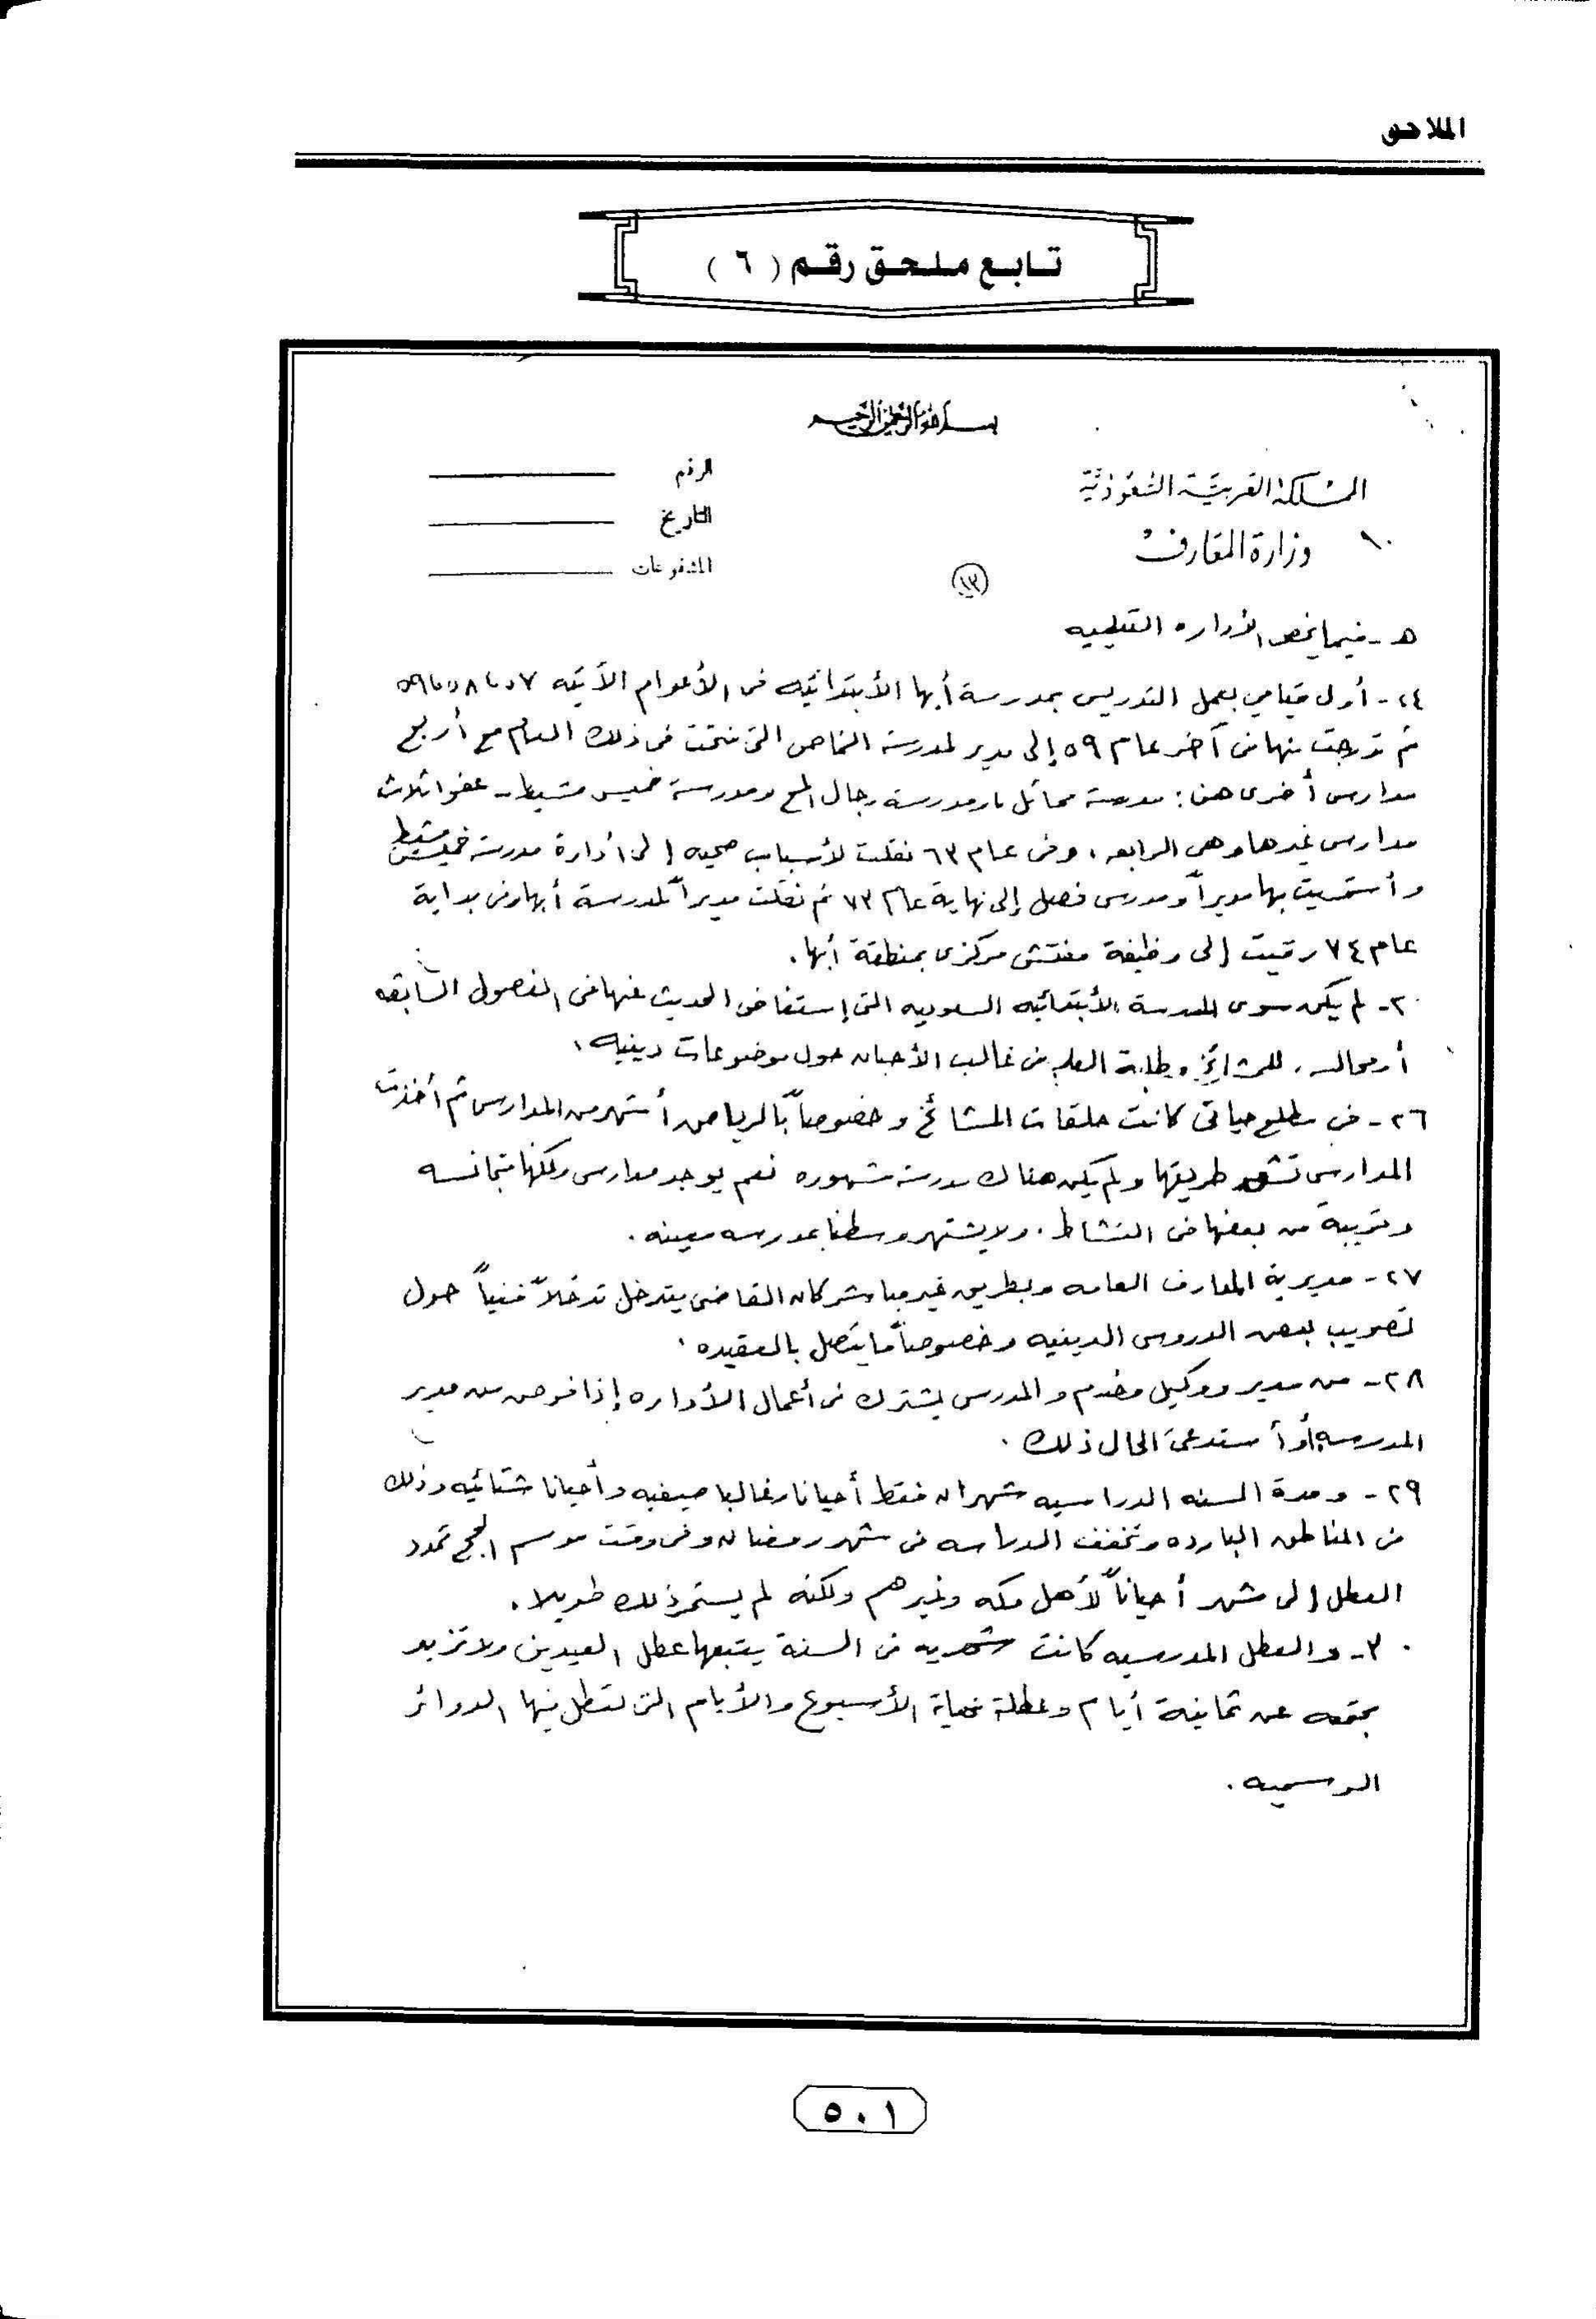 الملاحق
تابع ملحق رقم ( ٦ )
بسم الله الرحمن الرحيم
المملكة العربية السعودية
وزارة المعارف
الرقم
التاريخ
المشفوعات
١٣
هـ - فيما يخص الأداره التعليميه
٢٤ - أول قيامي بعمل التدريس بمدرسة أبها الأبتدائيه فى الأعوام الأتيه ٥٧، ٥٨، ٥٩
ثم تدرجت منها فى آخر عام ٥٩ إلى مدير لمدرسة النماص التى فتحت فى ذلك العام مع أربع
مدارس أخرى هن: مدرسة محائل ومدرسة رجال المع ومدرسة خميس مشيط - عفوا ثلاث
مدارس غيرها وهى الرابعه، وفى عام ٦٣ نقلت لأسباب صحيه إلى أدارة مدرسة خميس مشيط
وأستمريت بها مديراً ومدرس فصل إلى نهاية عام ٧٣ ثم نقلت مديراً لمدرسة أبها وفى بداية
عام ٧٤ رقيت إلى وظيفة مفتش مركزى بمنطقة أبها.
لم يكن سوى المدرسة الأبتدائيه السعوديه التى إستفاض الحديث عنها فى الفصول السابقه
أو مجالس للمشائخ وطلبة العلم فى غالب الأحيان حول موضوعات دينيه.
٢٦ - فى مطلع حياتى كانت حلقات المشائخ وخصوصاً بالرياض أشهر من المدارس ثم أخذت
المدارس تشق طريقها ولم يكن هناك مدرسة مشهوره نعم يوجد مدارس ولكنها متجانسه
وقريبة من بعضها فى النشاط. ولا يشتهر وسطنا بمدرسه معينه.
٢٧ - مديرية المعارف العامه وبطريق غير مباشر كان القاضى يتدخل تدخلاً فنياً حول
تصويب بعض الدروس الدينيه وخصوصاً ما يتصل بالعقيده.
٢٨ - من مدير ووكيل وخدم والمدرس يشترك فى أعمال الأداره إذا فوض من مدير
المدرسه أو أستدعى الحال ذلك.
٢٩ - ومدة السنه الدراسيه شهران فقط أحيانا وغالبا صيفيه وأحيانا شتائيه وذلك
فى المناطق البارده وتخفف الدراسه فى شهر رمضان وفى وقت موسم الحج تمدد
العطل إلى شهر أحياناً لأهل مكه وغيرهم ولكنه لم يستمر ذلك طويلا.
٣٠ - والعطل المدرسيه كانت شهريه فى السنة يتبعها عطل العيدين ولا تزيد
بجمعه عن ثمانية أيام وعطلة نهاية الأسبوع والأيام التى تتعطل فيها الدوائر
الرسميه.
٥٠١